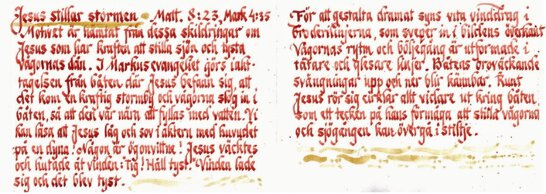 Jesus stillar stormen - Matt. 8:23, Mark 4:35
Motivet är hämtat från dessa skildringar om
Jesus som har kraften att stilla sjön och tysta
vågornas dån. I Markus evangeliet görs iakt-
tagelsen från båten där Jesus befann sig, att
det kom en kraftig stormby och vågorna slog in i
båten, så att den var nära att fyllas med vatten. Vi
kan läsa att Jesus låg och sov i aktern med huvudet
på en dyna! Någon är ögonvittne! Jesus väcktes
och hutade åt vinden: Tig! Håll tyst! Vinden lade
sig och det blev tyst.
För att gestalta dramat syns vita vinddrag i
broderilinjerna, som sveper in i bildens överkant
Vågornas rytm och böljegång är utformade i
tätare och glesare linjer. Båtens broväckande
svängningar upp och ner blir kännbar. Runt
Jesus rör sig cirklar allt vidare ut kring båten,
som ett tecken på hans förmåga att stilla vågorna
och sjögången kan övergå i stiltje.